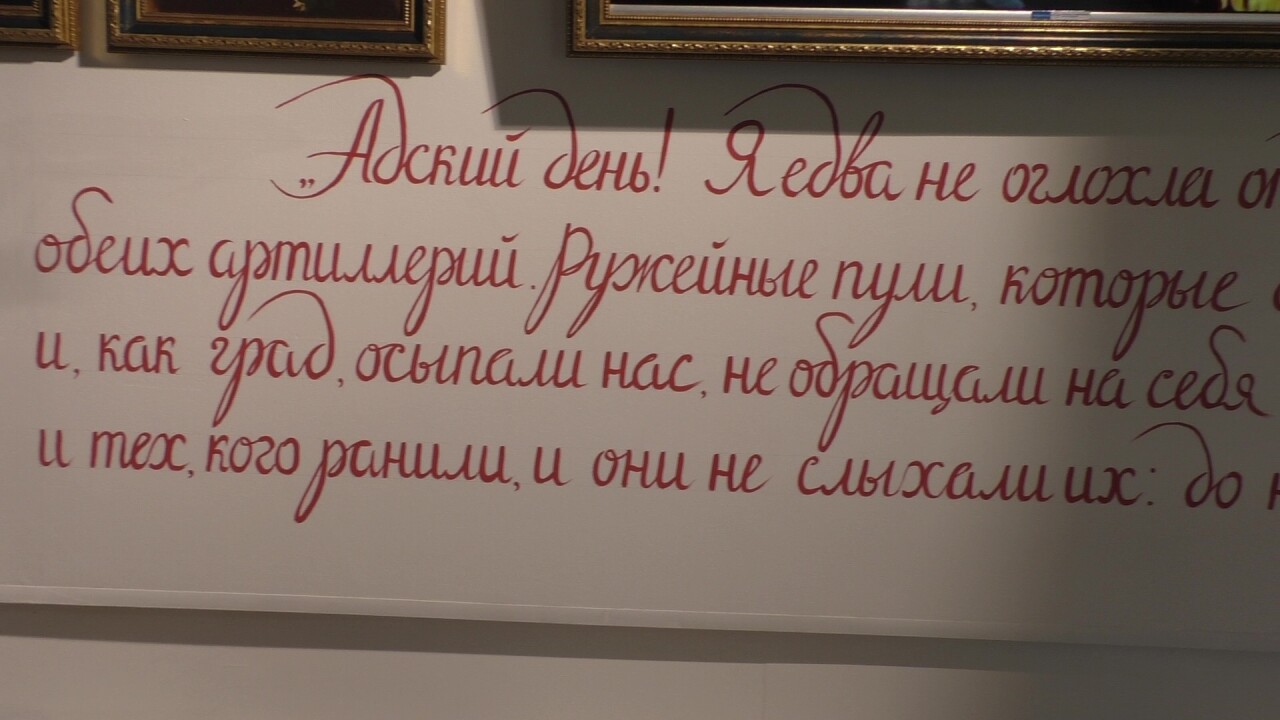 „Адский день! Я едва не оглохла
обеих артиллерий. Ружейные пули, которые
и, как град, осыпали нас, не обращали на себя
и тех, кого ранили, и они не слыхали их: до